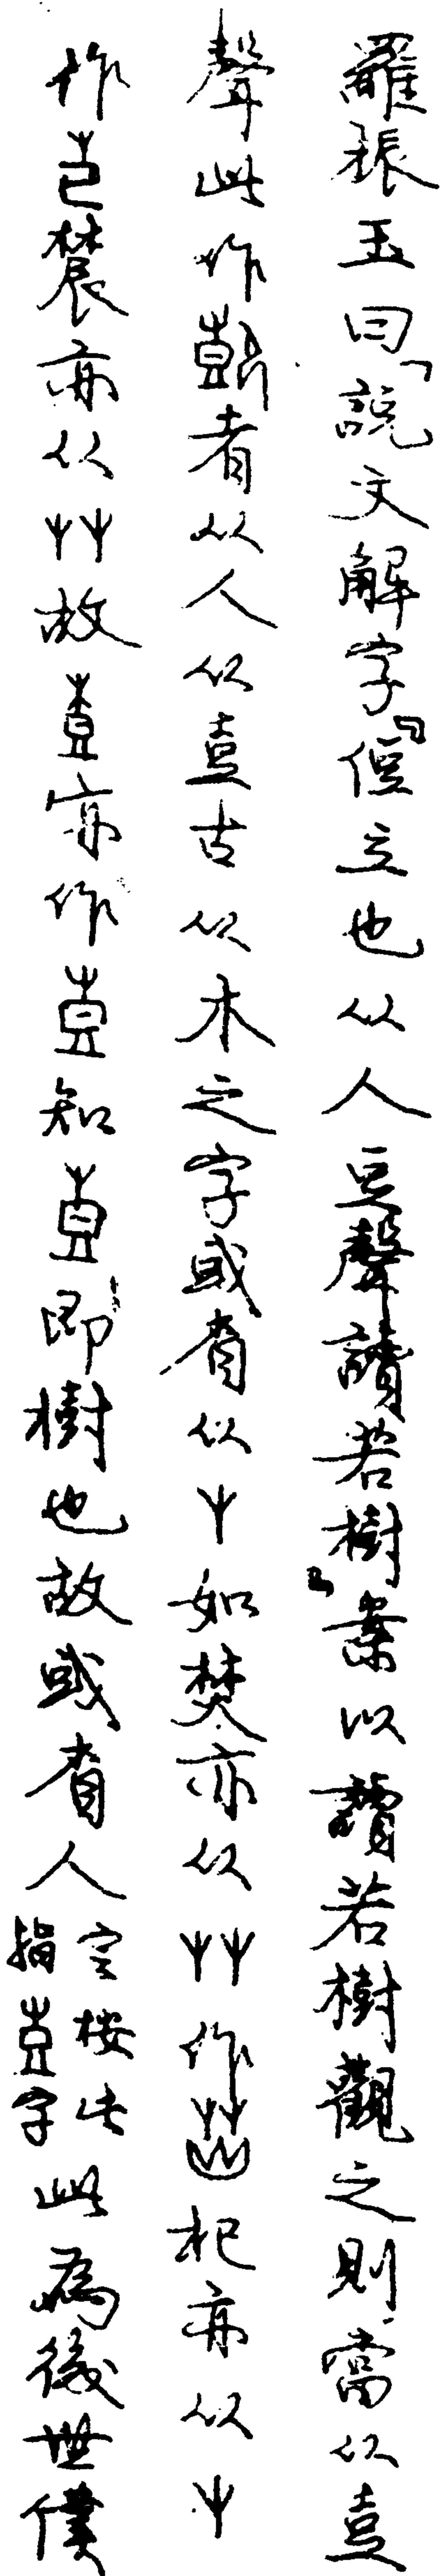 羅振玉曰「說文解字『侸立也从人豆聲讀若樹』案以讀若樹觀之則當从壴
聲此作者从人从壴古从木之字或省从屮如焚亦从艸作杞亦从屮
作芑䢅亦从艸故亦作知即樹也故或省人定按此指壴字此為後世僕